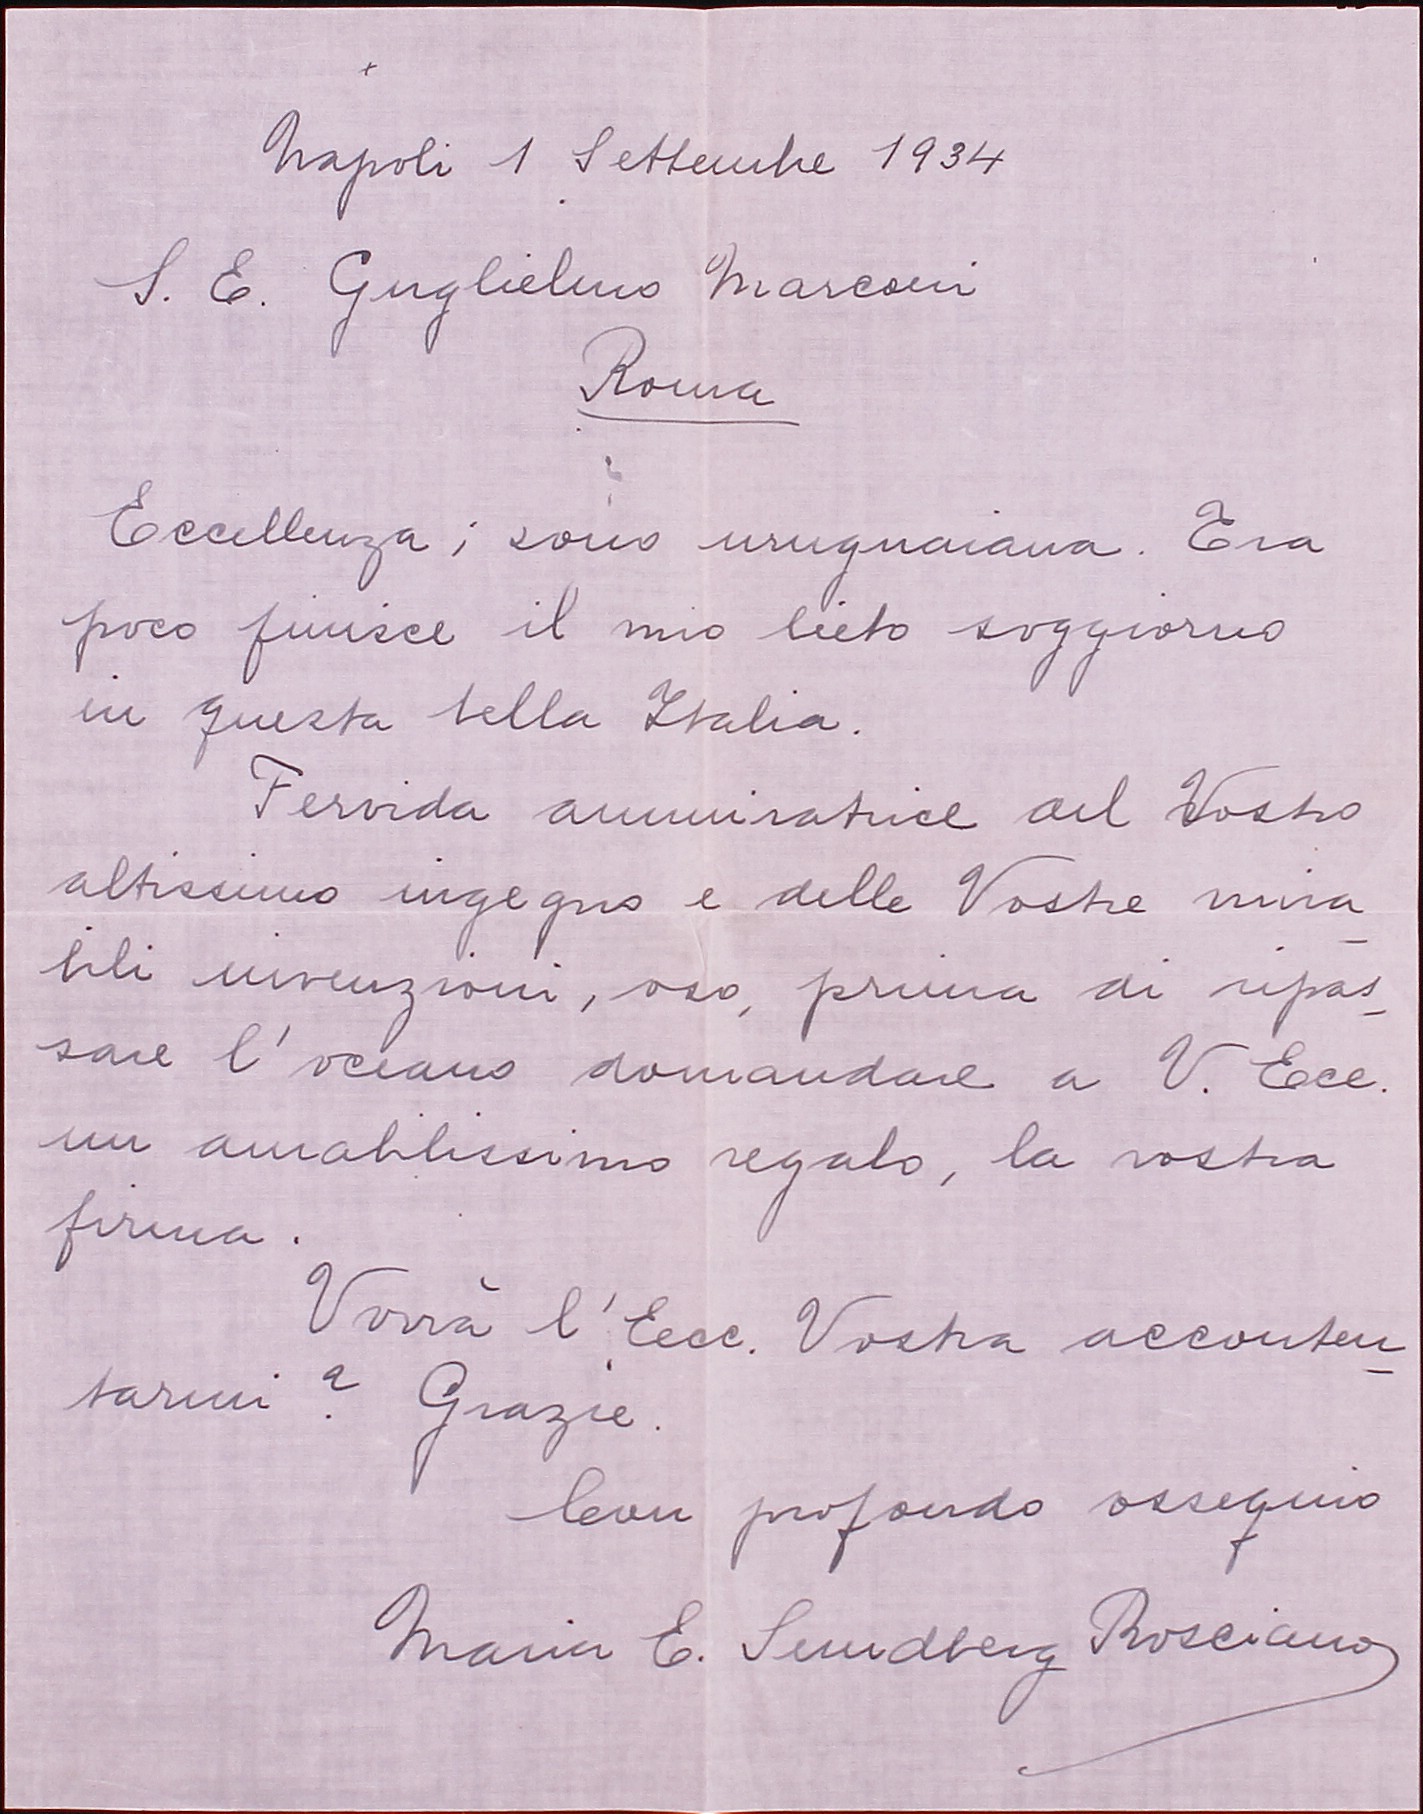 Napoli 1 Settembre 1934
S. E. Guglielmo Marconi
Roma
Eccellenza; sono uruguaiana. Tra
poco finisce il mio lieto soggiorno
in questa bella Italia.
Fervida ammiratrice del Vostro
altissimo ingegno e delle Vostre mira-
bili invenzioni, oso, prima di ripas-
sare l'oceano domandare a V. Ecc.
un amabilissimo regalo, la vostra
firma.
Vorrà l'Ecc. Vostra acconten-
tarmi? Grazie.
Con profondo ossequio
Maria E. Sundberg Rosciano